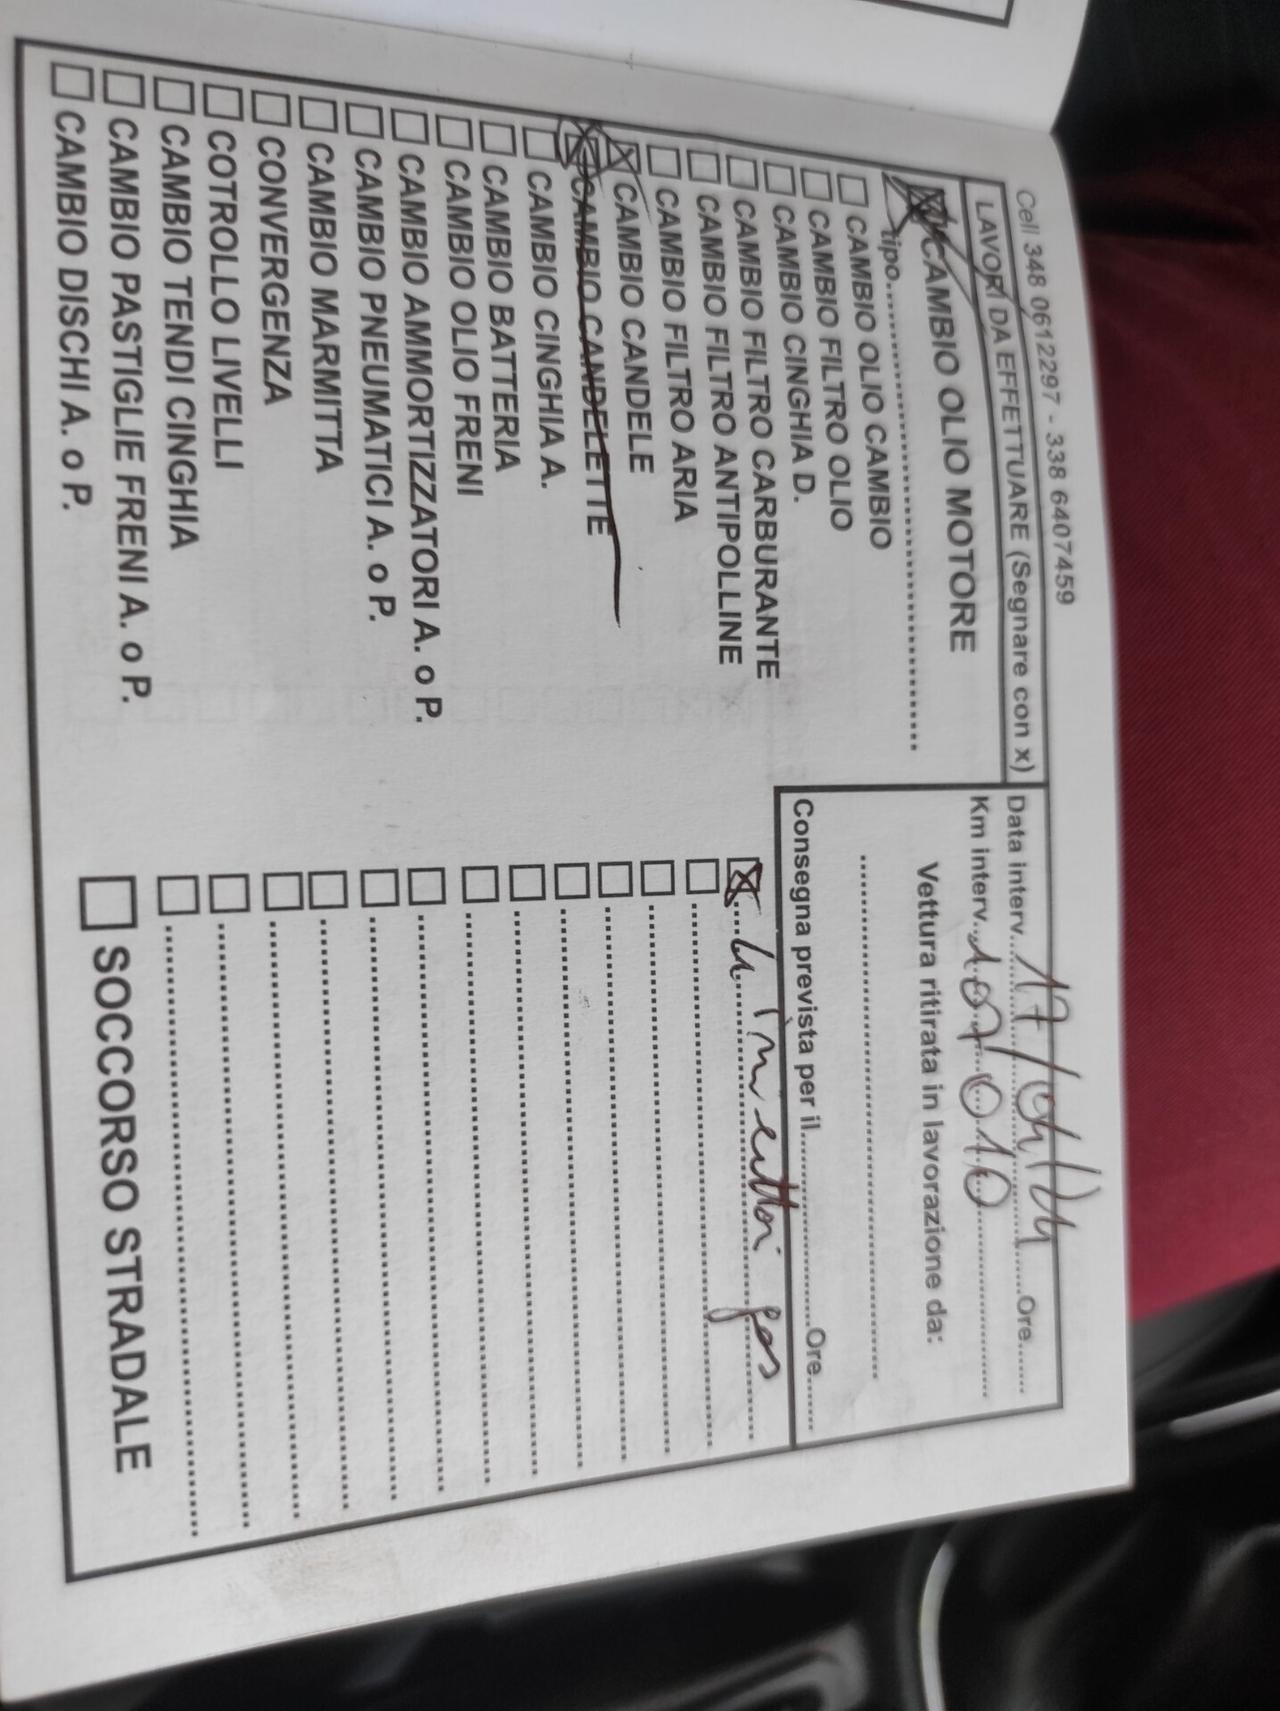 Cell 348 0612297 - 338 6407459
LAVORI DA EFFETTUARE (Segnare con x)
CAMBIO OLIO MOTORE
tipo
CAMBIO OLIO CAMBIO
CAMBIO FILTRO OLIO
CAMBIO CINGHIA D.
CAMBIO FILTRO CARBURANTE
CAMBIO FILTRO ANTIPOLLINE
CAMBIO FILTRO ARIA
CAMBIO CANDELE
CAMBIO CANDELETTE
CAMBIO CINGHIA A.
CAMBIO BATTERIA
CAMBIO OLIO FRENI
CAMBIO AMMORTIZZATORI A. o P.
CAMBIO PNEUMATICI A. o P.
CAMBIO MARMITTA
CONVERGENZA
COTROLLO LIVELLI
CAMBIO TENDI CINGHIA
CAMBIO PASTIGLIE FRENI A. o P.
CAMBIO DISCHI A. o P.
Data interv. Ore
Km interv. 107.010
Vettura ritirata in lavorazione da:
Consegna prevista per il Ore
4 Iniettori gas
SOCCORSO STRADALE